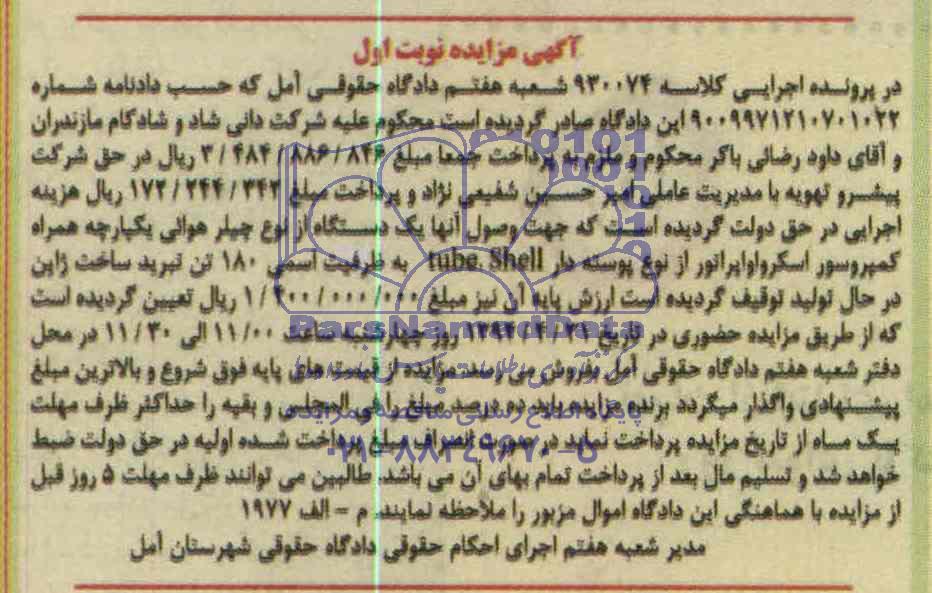 آگهی مزایده نوبت اول
در پرونده اجرایی کلاسه ۹۳۰۰۷۴ شعبه هفتم دادگاه حقوقی آمل که حسب دادنامه شماره
۹۰۰۹۹۷۱۲۱۰۷۰۱۰۲۲ این دادگاه صادر گردیده است محکوم علیه شرکت دانی شاد و شادکام مازندران
و آقای داود رضائی باکر محکوم و ملزم به پرداخت جمعا مبلغ ۳/۴۸۴/۸۸۶/۸۴۶ ریال در حق شرکت
پیشرو تهویه با مدیریت عاملی امیر حسین شفیعی نژاد و پرداخت مبلغ ۱۷۲/۲۴۴/۳۴۲ ریال هزینه
اجرایی در حق دولت گردیده است که جهت وصول آنها یک دستگاه از نوع چیلر هوائی یکپارچه همراه
کمپروسور اسکرواواپراتور از نوع پوسته دار tube. Shell به ظرفیت اسمی ۱۸۰ تن تبرید ساخت ژاپن
در حال تولید توقیف گردیده است ارزش پایه آن نیز مبلغ ریال تعیین گردیده است
که از طریق مزایده حضوری در تاریخ روز چهارشنبه ساعت ۱۱/۰۰ الی ۱۱/۳۰ در محل
دفتر شعبه هفتم دادگاه حقوقی آمل بفروش می رسد. مزایده از قیمت های پایه فوق شروع و بالاترین مبلغ
پیشنهادی واگذار میگردد برنده مزایده باید ده درصد مبلغ را فی المجلس و بقیه را حداکثر ظرف مهلت
یک ماه از تاریخ مزایده پرداخت نماید در صورت انصراف مبلغ پرداخت شده اولیه در حق دولت ضبط
خواهد شد و تسلیم مال بعد از پرداخت تمام بهای آن می باشد. طالبین می توانند ظرف مهلت ۵ روز قبل
از مزایده با هماهنگی این دادگاه اموال مزبور را ملاحظه نمایند. م - الف ۱۹۷۷
مدیر شعبه هفتم اجرای احکام حقوقی دادگاه حقوقی شهرستان آمل
ParsNamadData
پایگاه اطلاع رسانی مناقصه و مزایده
۰۲۱-۸۸۳۴۹۶۷۰-۵